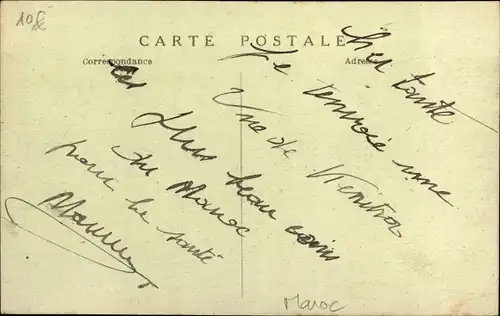 10f
CARTE POSTALE
Correspondance
Adresse
Cher tante
Je t'envoie une
Vue de Kénitra
les plus beau coins
du Maroc
pour la santé
Maroc